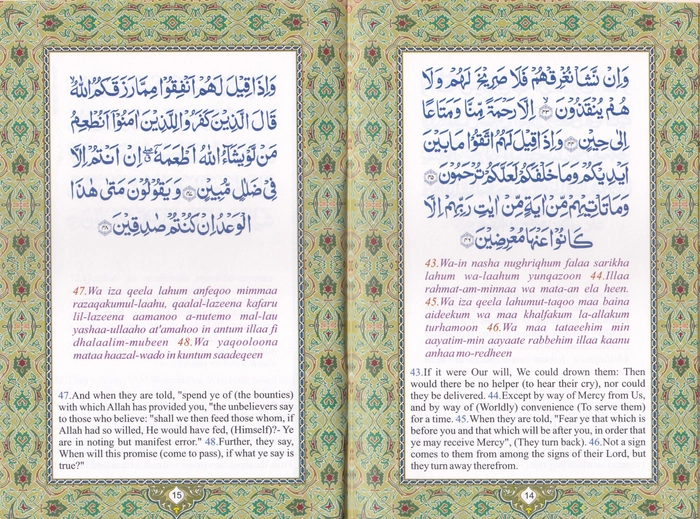 وَاِنْ نَّشَاْ نُغْرِقْهُمْ فَلَا صَرِيْخَ لَهُمْ وَلَا
هُمْ يُنْقَذُوْنَ ۝٤٣ اِلَّا رَحْمَةً مِّنَّا وَمَتَاعًا
اِلٰى حِيْنٍ ۝٤٤ وَاِذَا قِيْلَ لَهُمُ اتَّقُوْا مَا بَيْنَ
اَيْدِيْكُمْ وَمَا خَلْفَكُمْ لَعَلَّكُمْ تُرْحَمُوْنَ ۝٤٥
وَمَا تَاْتِيْهِمْ مِّنْ اٰيَةٍ مِّنْ اٰيٰتِ رَبِّهِمْ اِلَّا
كَانُوْا عَنْهَا مُعْرِضِيْنَ ۝٤٦
43.Wa-in nasha nughriqhum falaa sarikha
lahum wa-laahum yunqazoon 44.Illaa
rahmat-am-minnaa wa mata-an ela heen.
45.Wa iza qeela lahumut-taqoo maa baina
aideekum wa maa khalfakum la-allakum
turhamoon 46.Wa maa tataeehim min
aayatim-min aayaate rabbehim illaa kaanu
anhaa mo-redheen
43.If it were Our will, We could drown them: Then
would there be no helper (to hear their cry), nor could
they be delivered. 44.Except by way of Mercy from Us,
and by way of (Worldly) convenience (To serve them)
for a time. 45.When they are told, "Fear ye that which is
before you and that which will be after you, in order that
ye may receive Mercy", (They turn back). 46.Not a sign
comes to them from among the signs of their Lord, but
they turn away therefrom.
14
وَاِذَا قِيْلَ لَهُمْ اَنْفِقُوْا مِمَّا رَزَقَكُمُ اللّٰهُ
قَالَ الَّذِيْنَ كَفَرُوْا لِلَّذِيْنَ اٰمَنُوْٓا اَنُطْعِمُ
مَنْ لَّوْ يَشَآءُ اللّٰهُ اَطْعَمَهٗٓ اِنْ اَنْتُمْ اِلَّا
فِيْ ضَلٰلٍ مُّبِيْنٍ ۝٤٧ وَيَقُوْلُوْنَ مَتٰى هٰذَا
الْوَعْدُ اِنْ كُنْتُمْ صٰدِقِيْنَ ۝٤٨
47.Wa iza qeela lahum anfeqoo mimmaa
razaqakumul-laahu, qaalal-lazeena kafaru
lil-lazeena aamanoo a-nutemo mal-lau
yashaa-ullaaho at'amahoo in antum illaa fi
dhalaalim-mubeen 48.Wa yaqooloona
mataa haazal-wado in kuntum saadeqeen
47.And when they are told, "spend ye of (the bounties)
with which Allah has provided you, "the unbelievers say
to those who believe: "shall we then feed those whom, if
Allah had so willed, He would have fed, (Himself)?- Ye
are in noting but manifest error." 48.Further, they say,
When will this promise (come to pass), if what ye say is
true?"
15